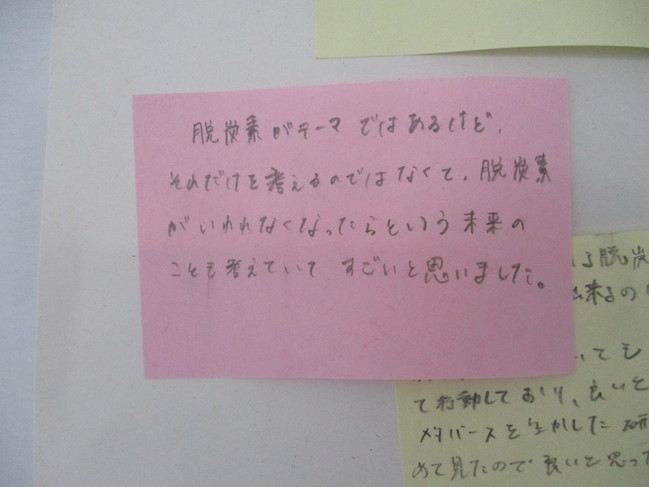 脱炭素がテーマではあるけど、
それだけを考えるのではなくて、脱炭素
がいわれなくなったらという未来の
ことも考えていてすごいと思いました。
る脱炭
出来るの
いてし
て行動しており、良いと
メタバースを生かした研
めて見たので良いと思った